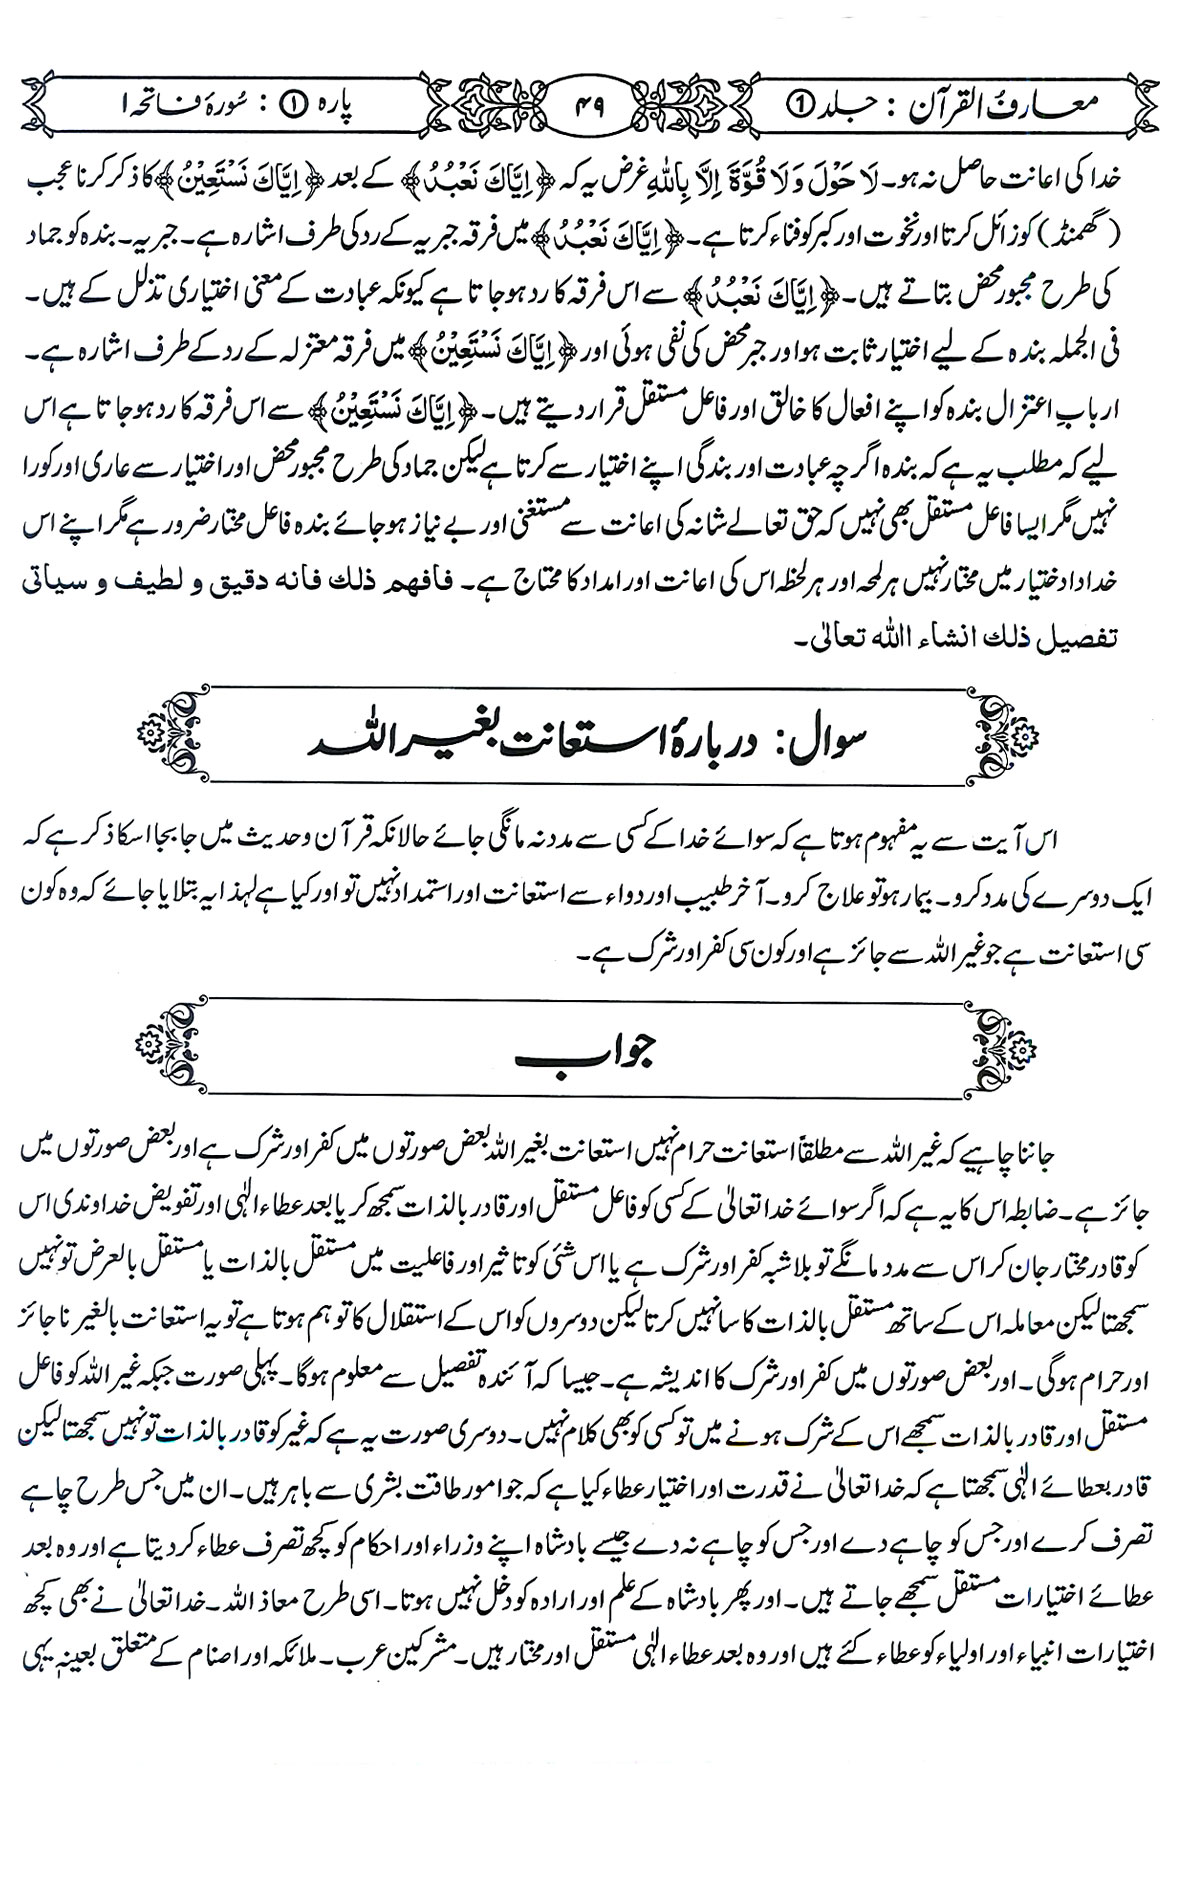 معارفُ القرآن : جلد ①
۴۹
پارہ ① : سُورۂ فاتحہ ۱
خدا کی اعانت حاصل نہ ہو۔ لَا حَوْلَ وَلَا قُوَّةَ اِلَّا بِاللّٰهِ غرض یہ کہ ﴿اِيَّاكَ نَعْبُدُ﴾ کے بعد ﴿اِيَّاكَ نَسْتَعِيْنُ﴾ کا ذکر کرنا عجب
(گھمنڈ) کو زائل کرتا اور نخوت اور کبر کو فناء کرتا ہے۔ ﴿اِيَّاكَ نَعْبُدُ﴾ میں فرقہ جبریہ کے رد کی طرف اشارہ ہے۔ جبریہ۔ بندہ کو جماد
کی طرح مجبور محض بتاتے ہیں۔ ﴿اِيَّاكَ نَعْبُدُ﴾ سے اس فرقہ کا رد ہو جاتا ہے کیونکہ عبادت کے معنی اختیاری تذلل کے ہیں۔
فی الجملہ بندہ کے لیے اختیار ثابت ہوا اور جبر محض کی نفی ہوئی اور ﴿اِيَّاكَ نَسْتَعِيْنُ﴾ میں فرقہ معتزلہ کے رد کے طرف اشارہ ہے۔
اربابِ اعتزال بندہ کو اپنے افعال کا خالق اور فاعل مستقل قرار دیتے ہیں۔ ﴿اِيَّاكَ نَسْتَعِيْنُ﴾ سے اس فرقہ کا رد ہو جاتا ہے اس
لیے کہ مطلب یہ ہے کہ بندہ اگر چہ عبادت اور بندگی اپنے اختیار سے کرتا ہے لیکن جماد کی طرح مجبور محض اور اختیار سے عاری اور کورا
نہیں مگر ایسا فاعل مستقل بھی نہیں کہ حق تعالےٰ شانہ کی اعانت سے مستغنی اور بے نیاز ہو جائے بندہ فاعل مختار ضرور ہے مگر اپنے اس
خدا داد ختیار میں مختار نہیں ہر لمحہ اور ہر لحظہ اس کی اعانت اور امداد کا محتاج ہے۔ فافهم ذلك فانه دقيق و لطيف و سياتى
تفصيل ذلك انشاء الله تعالىٰ۔
سوال: دربارۂ استعانت بغیر اللہ
اس آیت سے یہ مفہوم ہوتا ہے کہ سوائے خدا کے کسی سے مدد نہ مانگی جائے حالانکہ قرآن و حدیث میں جابجا اسکا ذکر ہے کہ
ایک دوسرے کی مدد کرو۔ بیمار ہو تو علاج کرو۔ آخر طبیب اور دواء سے استعانت اور استمداد نہیں تو اور کیا ہے لہذا یہ بتلایا جائے کہ وہ کون
سی استعانت ہے جو غیر اللہ سے جائز ہے اور کون سی کفر اور شرک ہے۔
جواب
جاننا چاہیے کہ غیر اللہ سے مطلقاً استعانت حرام نہیں استعانت بغیر اللہ بعض صورتوں میں کفر اور شرک ہے اور بعض صورتوں میں
جائز ہے۔ ضابطہ اس کا یہ ہے کہ اگر سوائے خدا تعالیٰ کے کسی کو فاعل مستقل اور قادر بالذات سمجھ کر یا بعد عطاء الٰہی اور تفویض خداوندی اس
کو قادر مختار جان کر اس سے مدد مانگے تو بلا شبہ کفر اور شرک ہے یا اس شئی کو تاثیر اور فاعلیت میں مستقل بالذات یا مستقل بالعرض تو نہیں
سمجھتا لیکن معاملہ اس کے ساتھ مستقل بالذات کا سا نہیں کرتا لیکن دوسروں کو اس کے استقلال کا توہم ہوتا ہے تو یہ استعانت بالغیر ناجائز
اور حرام ہوگی۔ اور بعض صورتوں میں کفر اور شرک کا اندیشہ ہے۔ جیسا کہ آئندہ تفصیل سے معلوم ہوگا۔ پہلی صورت جبکہ غیر اللہ کو فاعل
مستقل اور قادر بالذات سمجھے اس کے شرک ہونے میں تو کسی کو بھی کلام نہیں۔ دوسری صورت یہ ہے کہ غیر کو قادر بالذات تو نہیں سمجھتا لیکن
قادر بعطائے الٰہی سمجھتا ہے کہ خدا تعالیٰ نے قدرت اور اختیار عطاء کیا ہے کہ جو امور طاقت بشری سے باہر ہیں۔ ان میں جس طرح چاہے
تصرف کرے اور جس کو چاہے دے اور جس کو چاہے نہ دے جیسے بادشاہ اپنے وزراء اور احکام کو کچھ تصرف عطاء کر دیتا ہے اور وہ بعد
عطائے اختیارات مستقل سمجھے جاتے ہیں۔ اور پھر بادشاہ کے علم اور ارادہ کو دخل نہیں ہوتا۔ اسی طرح معاذ اللہ۔ خدا تعالیٰ نے بھی کچھ
اختیارات انبیاء اور اولیاء کو عطاء کئے ہیں اور وہ بعد عطاء الٰہی مستقل اور مختار ہیں۔ مشرکین عرب۔ ملائکہ اور اصنام کے متعلق بعینہٖ یہی